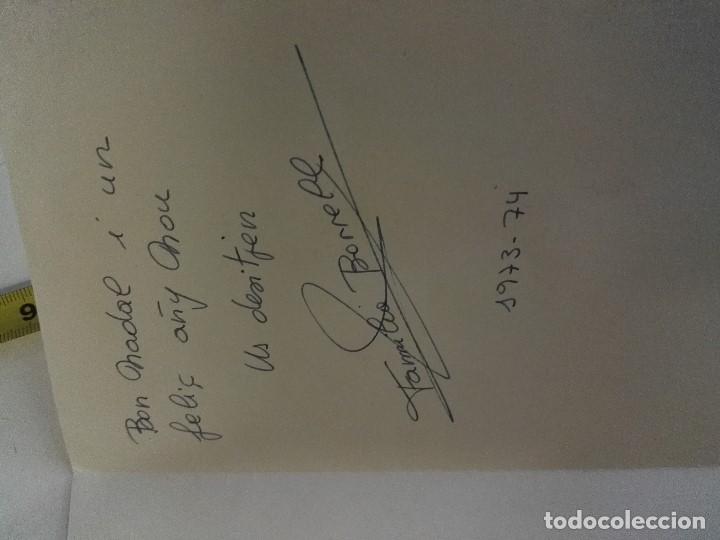 Bon Nadal i un
feliç añy Nou
Us desitjen
Familia Borrell
1973-74
9
todocoleccion